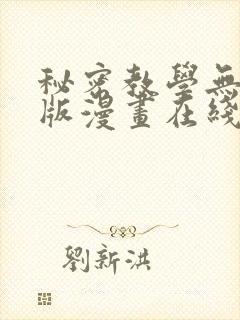 秘密教學無
版漫畫在綫
劉新洪